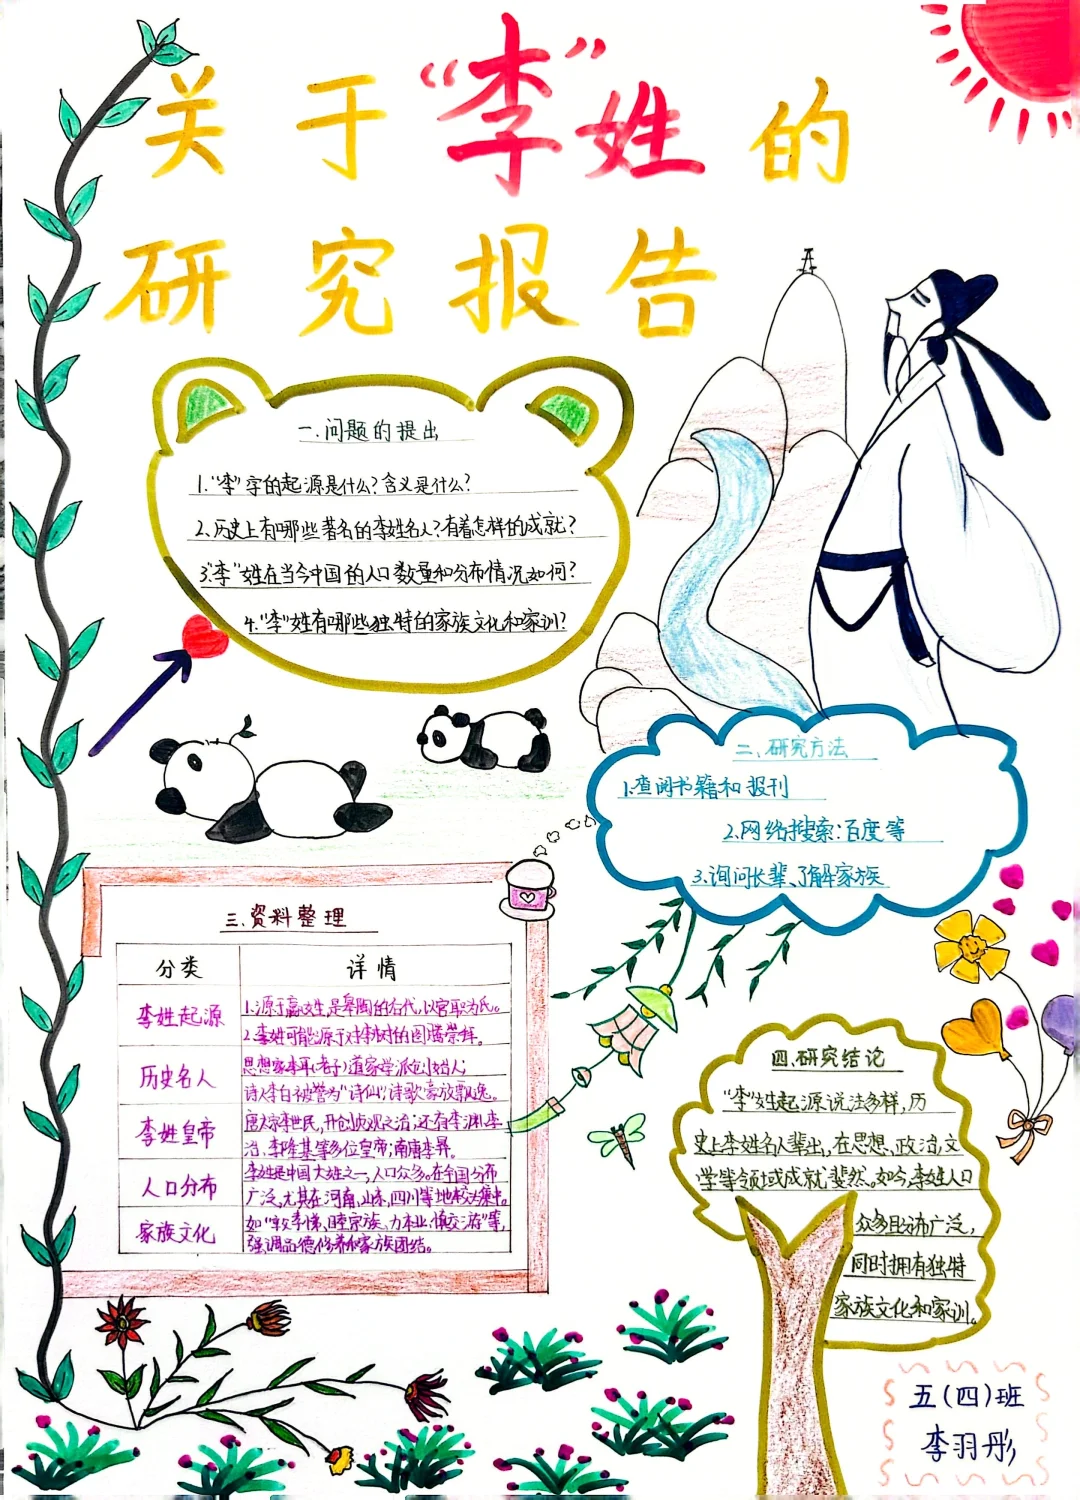 关于“李”姓的
研究报告
一.问题的提出
1.“李”字的起源是什么?含义是什么?
2.历史上有哪些著名的李姓名人?有着怎样的成就?
3.“李”姓在当今中国的人口数量和分布情况如何?
4.“李”姓有哪些独特的家族文化和家训?
二、研究方法
1.查阅书籍和报刊
2.网络搜索:百度等
3.询问长辈、了解家族
三.资料整理
分类 详情
李姓起源 1.源于嬴姓,是皋陶的后代,以官职为氏。
2.李姓可能源于对李树的图腾崇拜。
历史名人 思想家李耳(老子)道家学派创始人;
诗人李白被誉为“诗仙”,诗歌豪放飘逸。
李姓皇帝 唐太宗李世民,开创贞观之治;还有李渊、李
治、李隆基等多位皇帝;南唐李昪。
人口分布 李姓是中国大姓之一,人口众多。在全国分布
广泛,尤其在河南、山东、四川等地较为集中。
家族文化 如“敦孝悌、睦宗族、力本业、慎交游”等,
强调品德修养和家族团结。
四.研究结论
“李”姓起源说法多样,历
史上李姓名人辈出,在思想、政治、文
学等领域成就斐然。如今,李姓人口
众多且分布广泛,
同时拥有独特
家族文化和家训。
五(四)班
李羽彤